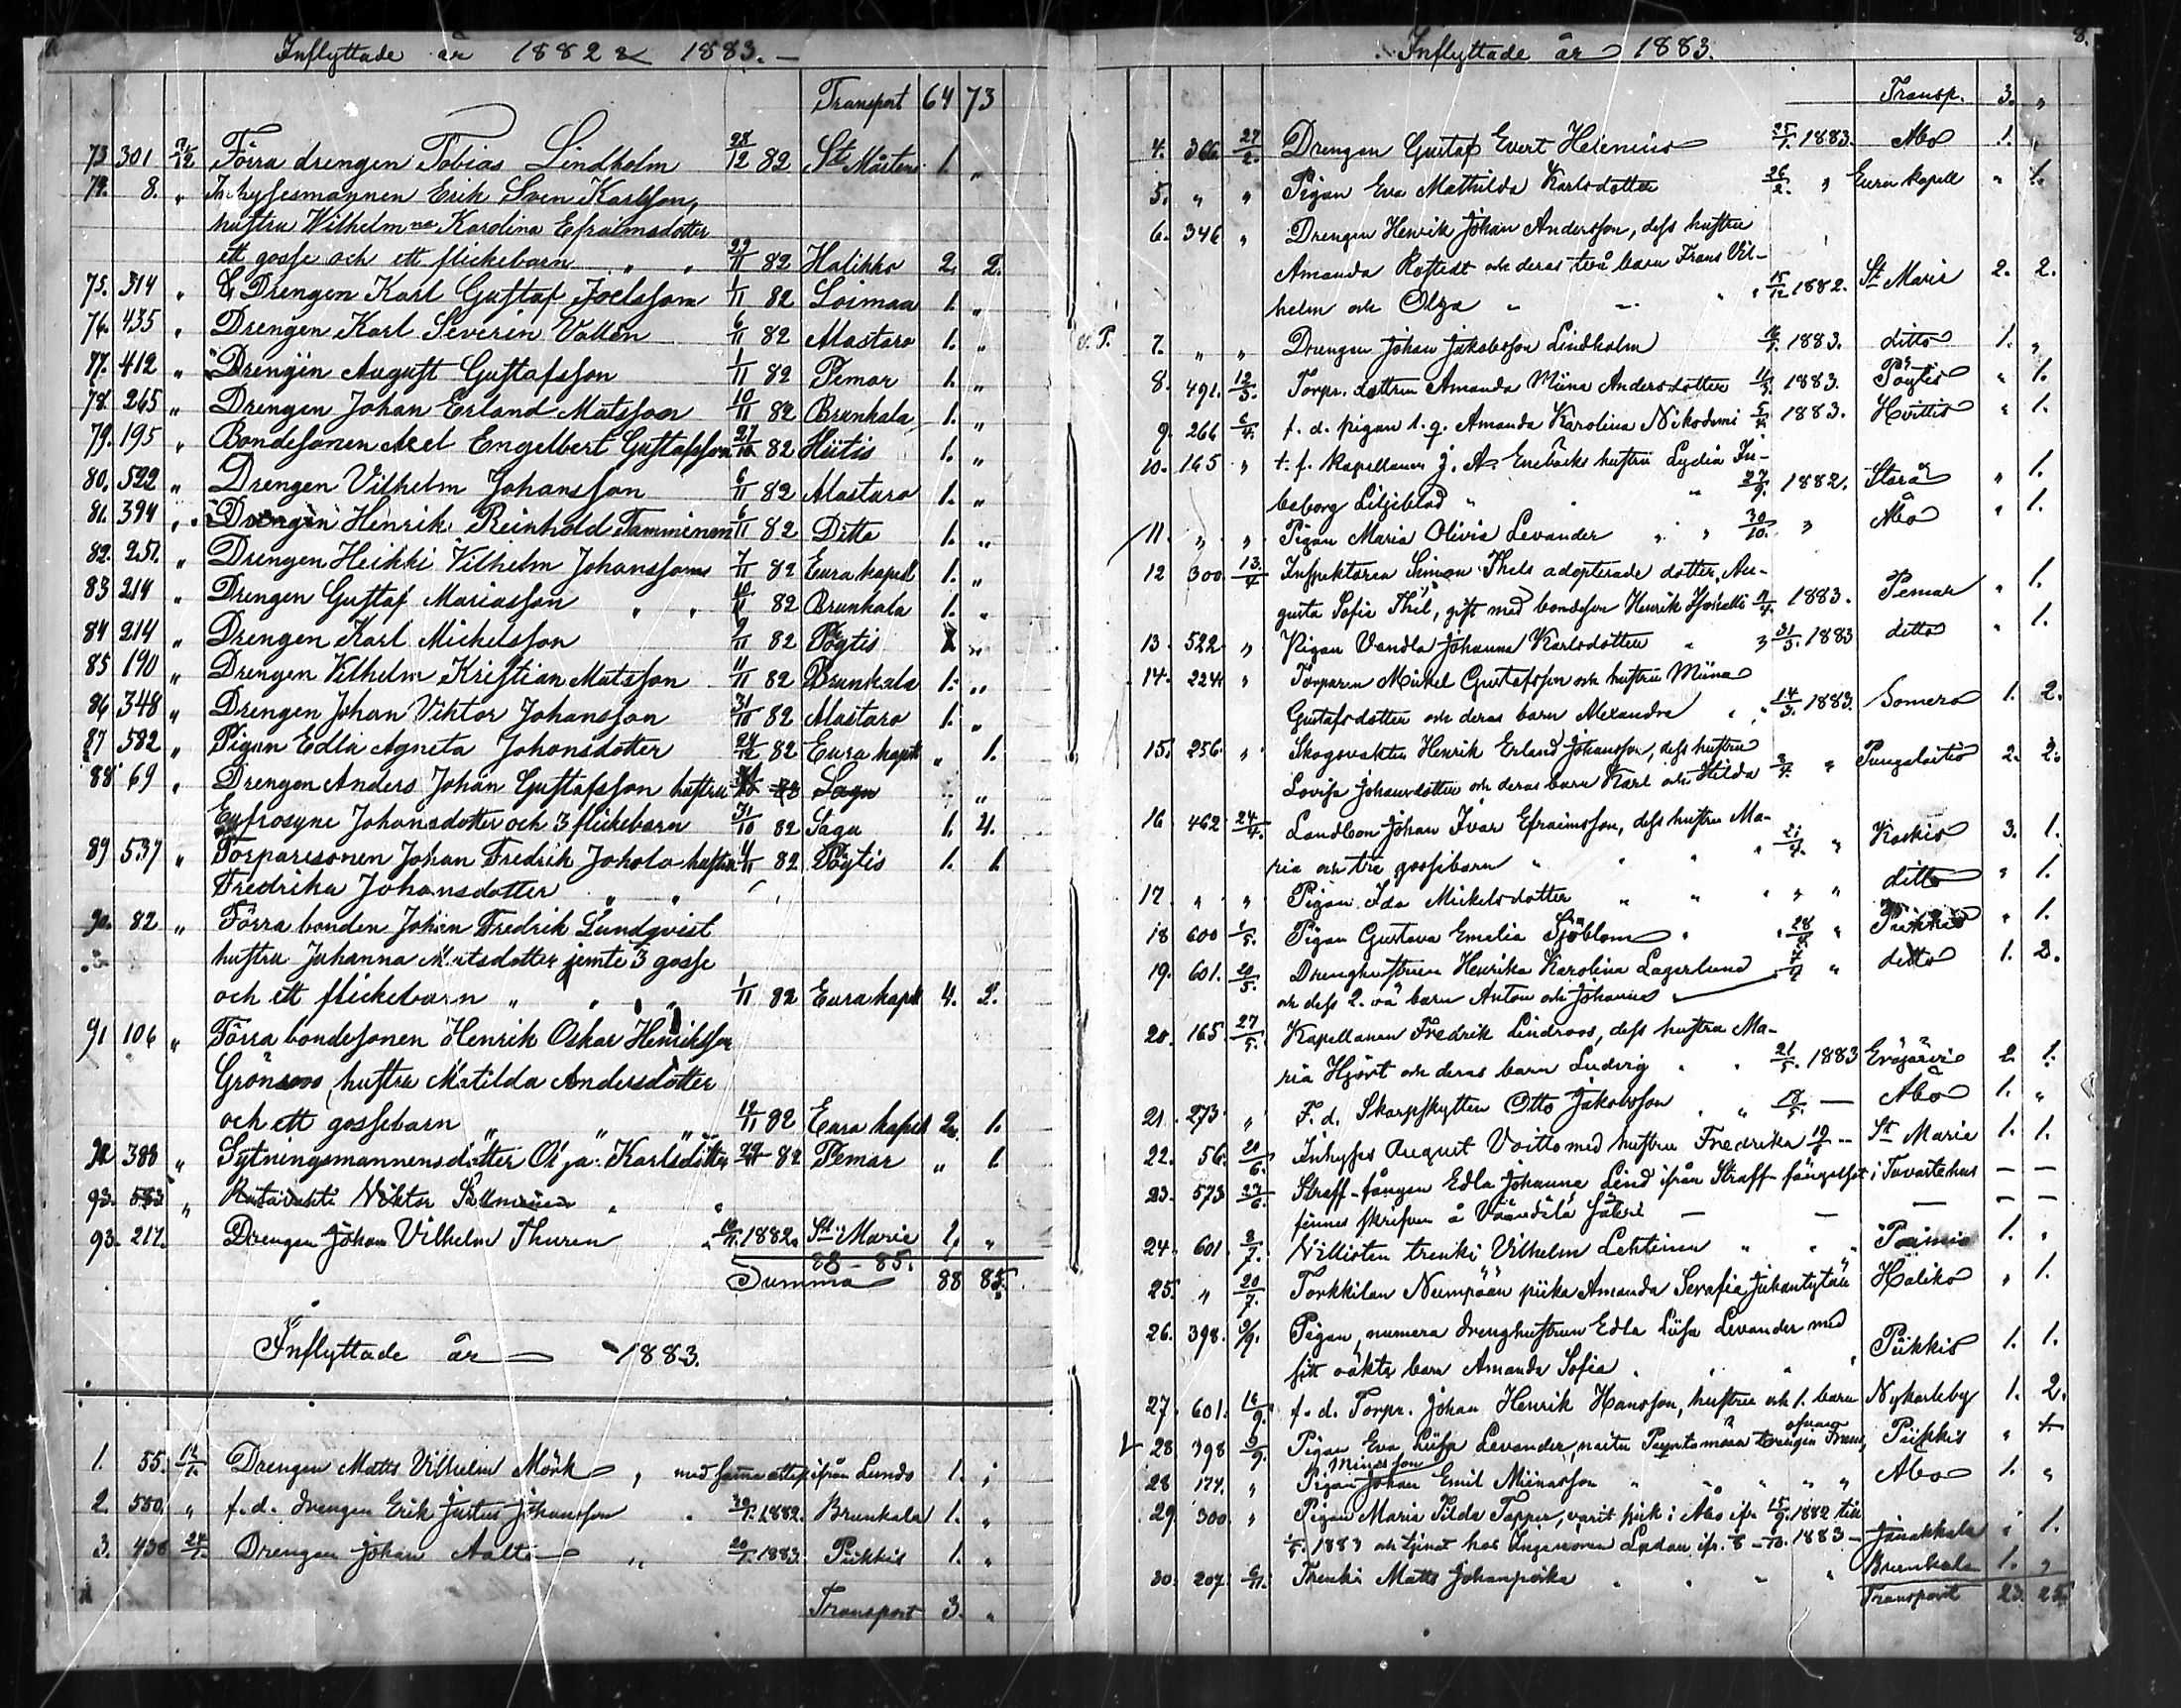 Inflyttade år 1882 & 1883.
Transport 64 73
73 301 31/12 Förra drengen Tobias Lindholm 28/12 82 St Mårtens 1. "
74. 8. " Inhysesmannen Erik Sven Karlsson,
hustru Wilhelmna Karolina Efraimsdotter
ett gosse och ett flickebarn " " 22/11 82 Halikko 2. 2.
75. 314 " Drengen Karl Gustaf Joelsson 1/11 82 Loimaa 1. "
76. 435 " Drengen Karl Severin Vallen 6/11 82 Alastaro 1. "
77. 412 " Drengen August Gustafsson 1/11 82 Pemar 1. "
78. 265 " Drengen Johan Erland Matsson 10/11 82 Brunkala 1. "
79. 195 " Bondesonen Axel Engelbert Gustafsson 27/10 82 Hiitis 1. "
80. 522 " Drengen Vilhelm Johansson 6/11 82 Alastaro 1. "
81. 394 " Drengen Henrik Reinhold Tamminen 6/11 82 Ditto 1. "
82. 251. " Drengen Heikki Vilhelm Johansson 7/11 82 Eura kapell 1. "
83 214 " Drengen Gustaf Mariasson " " 10/11 82 Brunkala 1. "
84 214 " Drengen Karl Michelsson 9/11 82 Pögtis 1 "
85 190 " Drengen Vilhelm Kristian Matsson 11/11 82 Brunkala 1. "
86 348 " Drengen Johan Viktor Johansson 31/10 82 Alastaro 1. "
87 582 " Pigan Edla Agneta Johansdotter 24/12 82 Eura kapell " 1.
88 69 " Drengen Anders Johan Gustafsson hustru Sagu
Eufrosyne Johansdotter och 3 flickebarn 31/10 82 Sagu 1. 4.
89 537 " Torparesonen Johan Fredrik Johola hustru 4/11 82 Pögtis 1. 1
Fredrika Johansdotter " "
90. 82 " Förra bonden Johan Fredrik Lundqvist
hustru Johanna Matsdotter jemte 3 gosse
och ett flickebarn " " " " 1/11 82 Eura kapell 4. 2.
91 106 " Förra bondesonen Henrik Oskar Henriksson
Grönroos, hustru Matilda Andersdotter
och ett gossebarn " " " 12/11 82 Eura kapell 2. 1.
92 388 " Sytningsmannensdotter Olga Karlsdotter 82 Pemar " 1
93. 583 " Viktor
93. 217. Drengen Johan Vilhelm Thuren " 1882. St Marie 1, "
88 - 85.
Summa 88 85.
Inflyttade år 1883.
1. 55. 14/1. Drengen Matts Vilhelm Mörk, med samma attest ifrån Lundo 1. "
2. 550. " f. d. drengen Erik Justus Johansson 1882. Brunkala 1. "
3. 438 24/1. Drengen Johan Aalto " 20/1. 1883. Piikkis 1. "
Transport 3. "
8.
Inflyttade år 1883.
Transp. 3. "
4. 366. 27/2. Drengen Gustaf Evert Helenius 25/1. 1883. Åbo 1. "
5. " " Pigan Eva Mathilda Karlsdotter 26/2. " Eura kapell " 1.
6. 346 " Drengen Henrik Johan Andersson, dess hustru
Amanda Rostedt och deras två barn Frans Vil-
helm och Olga " " " 15/12 1882. St Marie 2. 2.
v. P. 7. " " Drengen Johan Jakobsson Lindholm 16/1. 1883. ditto 1. "
8. 491. 12/3. Torpr. dottren Amanda Miina Andersdotter 11/3. 1883. Pöytis " 1.
9. 266 6/4. f. d. pigan l. q. Amanda Karolina Nikodemi 5/4. 1883. Hvittis " 1.
10. 165 " t. f. Kapellanen J. A. Enebäcks hustru Lydia In-
beborg Liljeblad " " 27/9. 1882. Storå " 1.
11. " " Pigan Maria Olivia Levander " " 30/10. " Åbo " 1.
12 300 13./4. Inspektoren Simon Thels adopterade dotter, Au-
gusta Sofia Thel, gift med bondeson Henrik 1883. Pemar " 1.
13. 522 " Pigan Vendla Johanna Karlsdotter " 31/3. 1883 ditto " 1.
14. 224 " Torparen Mickel Gustafsson och hustru Miina
Gustafsdotter och deras barn Alexandra " " 14/3. 1883. Somero 1. 2.
15. 256. " Skogsvakten Henrik Erland Johansson, dess hustru
Lovisa Johansdotter och deras barn Karl och Hilda " Pungalaitio 2. 2.
16. 462 24/4. Landbon Johan Ivar Efraimsson, dess hustru Ma-
ria och tre gossebarn " " " 21/4. " Koskis 3. 1.
17. " " Pigan Ida Mickelsdotter " " " " ditto " 1.
18 600 1/5. Pigan Gustava Emelia Sjöblom " 28/4. " Piikkis " 1.
19. 601. 20/5. Drenghustrun Henrika Karolina Lagerlund " ditto 1. 2.
och dess 2. två barn Anton och Johanna
20. 165. 27/5. Kapellanen Fredrik Lindroos, dess hustru Ma-
ria Hjort och deras barn Ludvig " " 21/5. 1883 Eräjärvi 2. 1.
21. 273 " F. d. Skarpskytten Otto Jakobsson " " 18/5. — Åbo 1. "
22. 56. 20/6. Inhyses August Voitto med hustru Fredrika St Marie 1. 1.
23. 573 27/6. Straff-fången Edla Johanna Lind ifrån Straff-fängelset i Tavastehus — —
finnes skrifven å Väändälä Säteri — — — — —
24. 601 8/7. Villisten trenki Vilhelm Lehtinen " " " Paimio 1. "
25. " 20/7. Torkkilan Numpään piika Amanda Serafia Juhantytär Haliko " 1.
26. 398. 2/9. Pigan, numera drenghustrun Edla Liisa Levander med
sitt oäkta barn Amanda Sofia " " " Piikkis 1. 1.
27. 601. 16/9. f. d. Torpr. Johan Henrik Hansson, hustru och 1. barn Nykarleby 1. 2.
28 398 9/9. Pigan Eva Liisa Levander, Piikkis "
28 174. " Johan Emil Miinasson " " " " " Åbo 1. "
29 300. " Pigan Maria Tilda Tapper, varit pik i Åbo ifr. 15/9. 1882 till
1883 och tjenat hos Ingeniören 1883 - Janakkala " 1.
30. 207. 6/11. Trenki Matts Johanpoika " " " " Brunkala 1. "
Transport 23. 25.